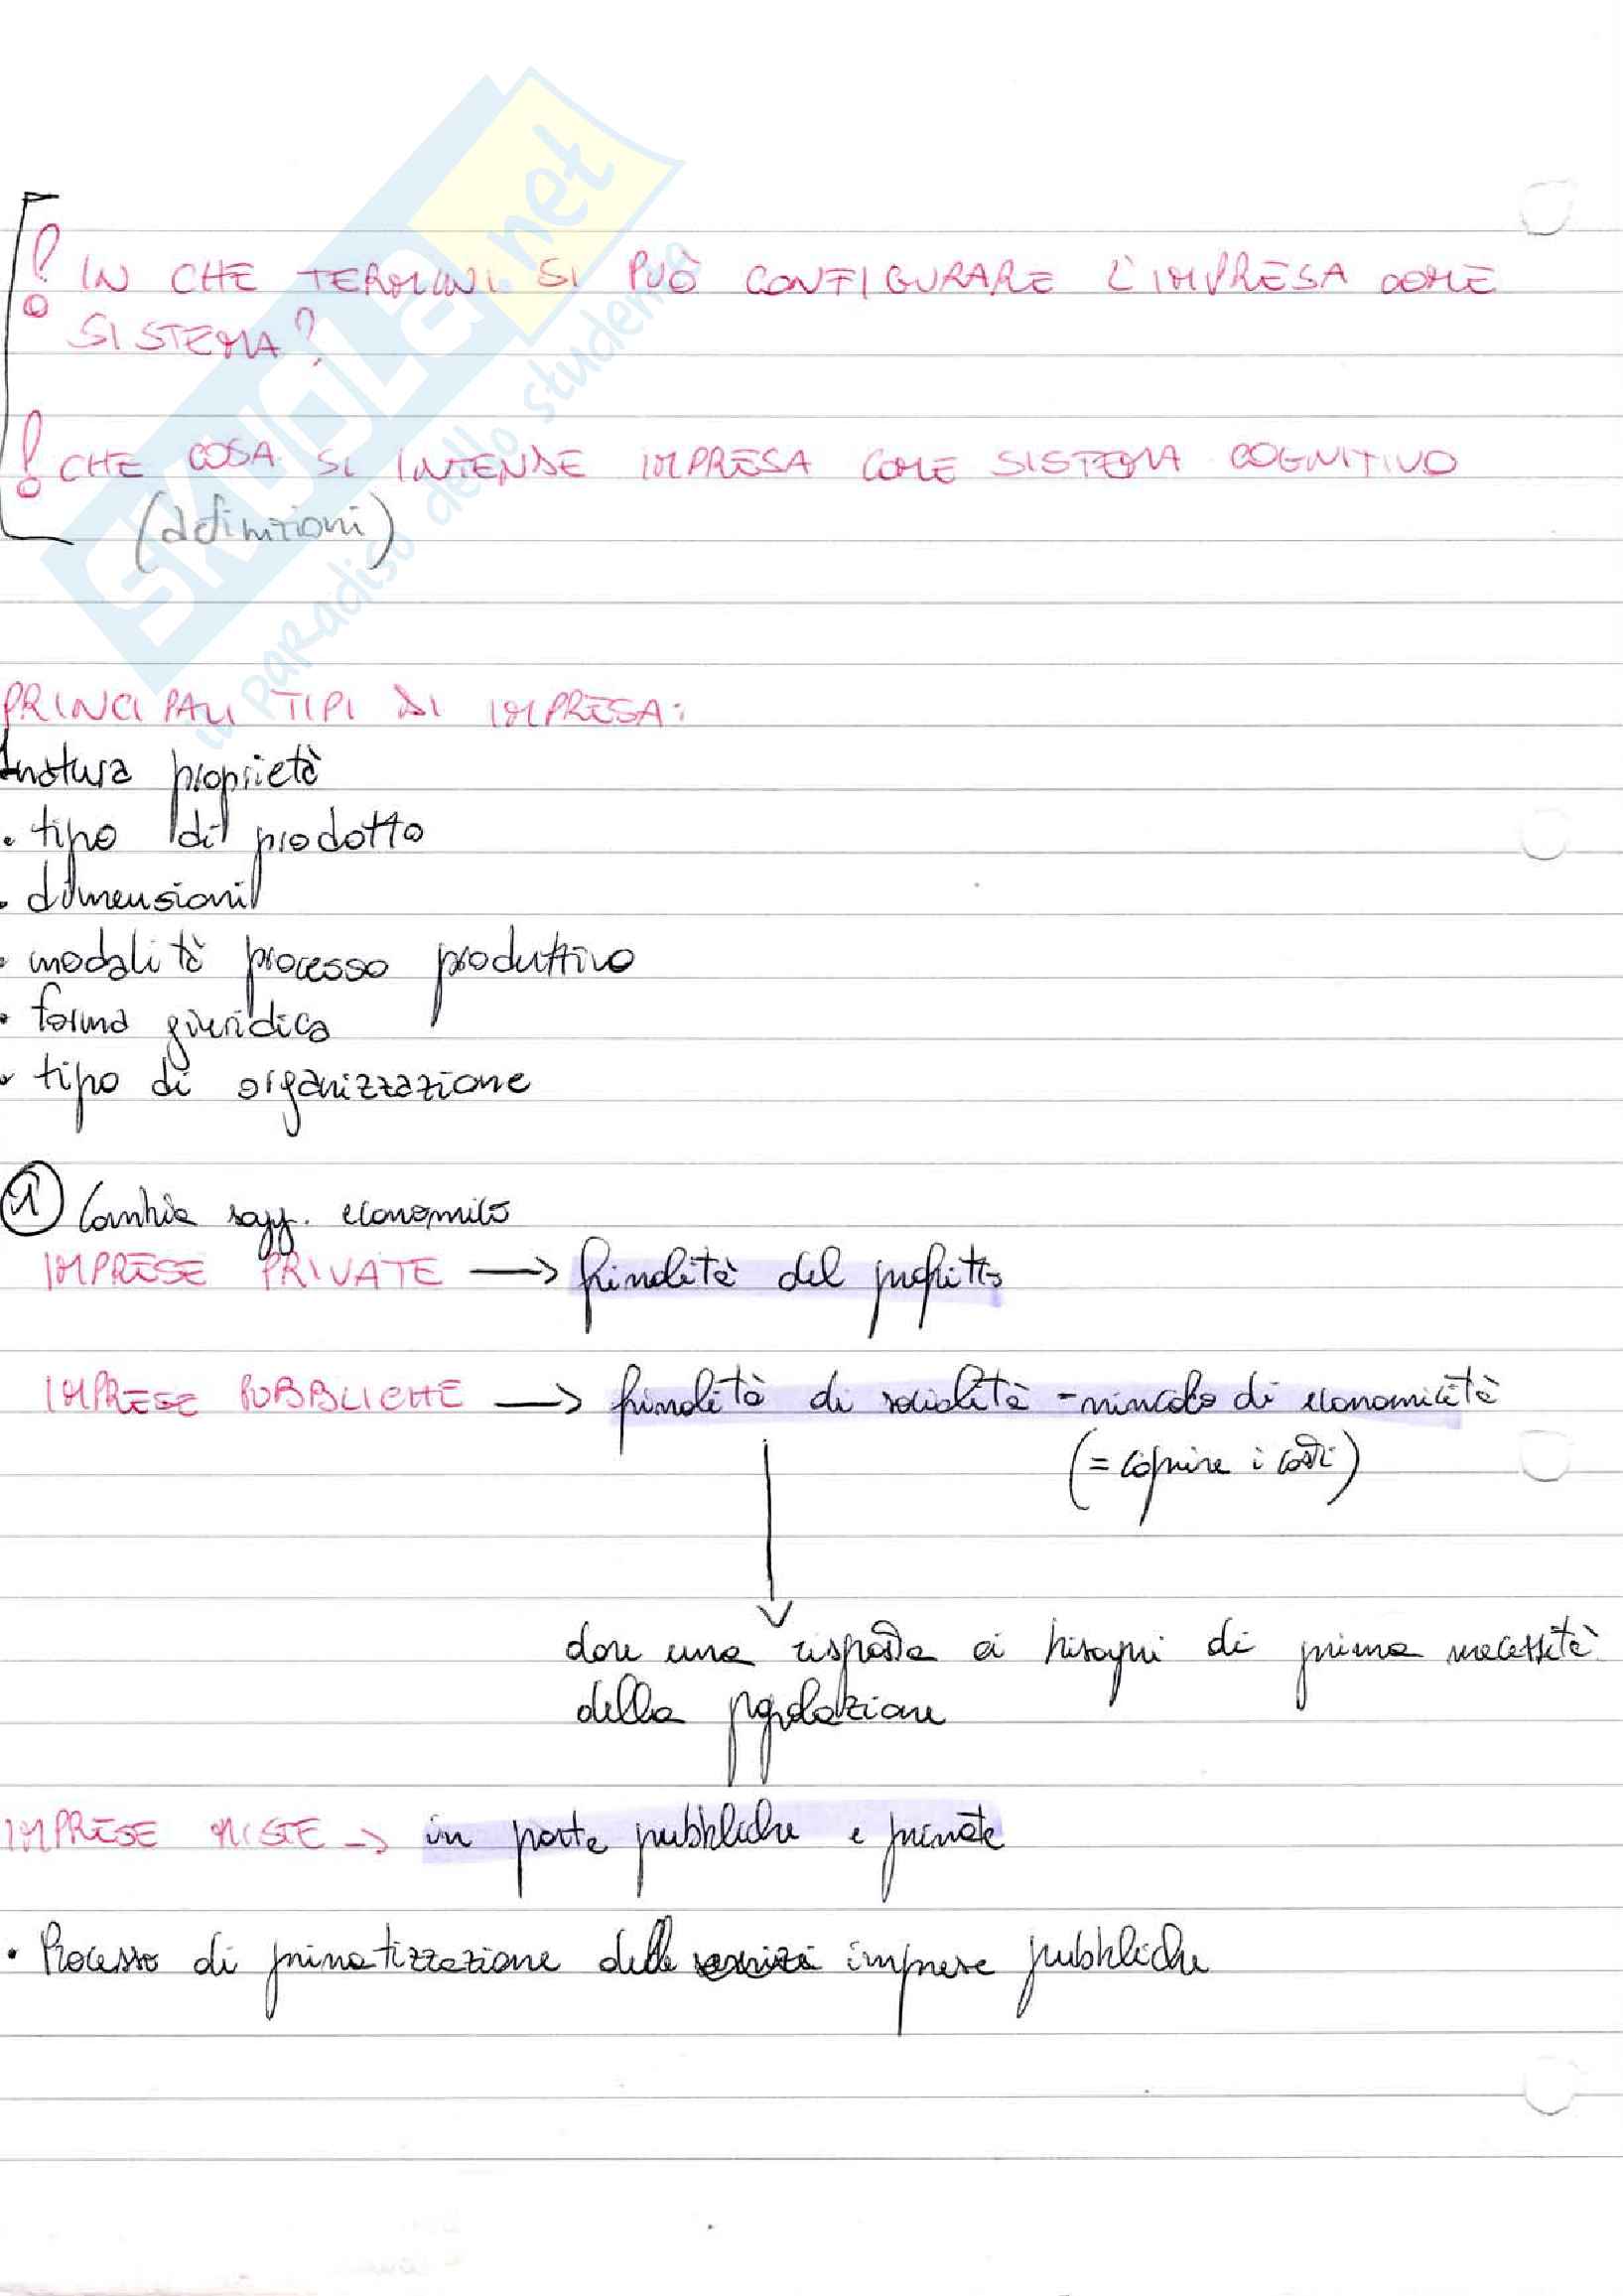 ! IN CHE TERMINI SI PUÒ CONFIGURARE L'IMPRESA COME
SISTEMA?
! CHE COSA SI INTENDE IMPRESA COME SISTEMA COGNITIVO
(definizioni)
PRINCIPALI TIPI DI IMPRESA:
natura proprietà
• tipo di prodotto
• dimensioni
• modalità processo produttivo
• forma giuridica
• tipo di organizzazione
1 Cambia sogg. economico
IMPRESE PRIVATE → finalità del profitto
IMPRESE PUBBLICHE → finalità di socialità - vincolo di economicità
(= coprire i costi)
dare una risposta ai bisogni di prima necessità
della popolazione
IMPRESE MISTE → in parte pubbliche e private
• Processo di privatizzazione delle servizi imprese pubbliche
SKUOLA.net
il paradiso dello studente